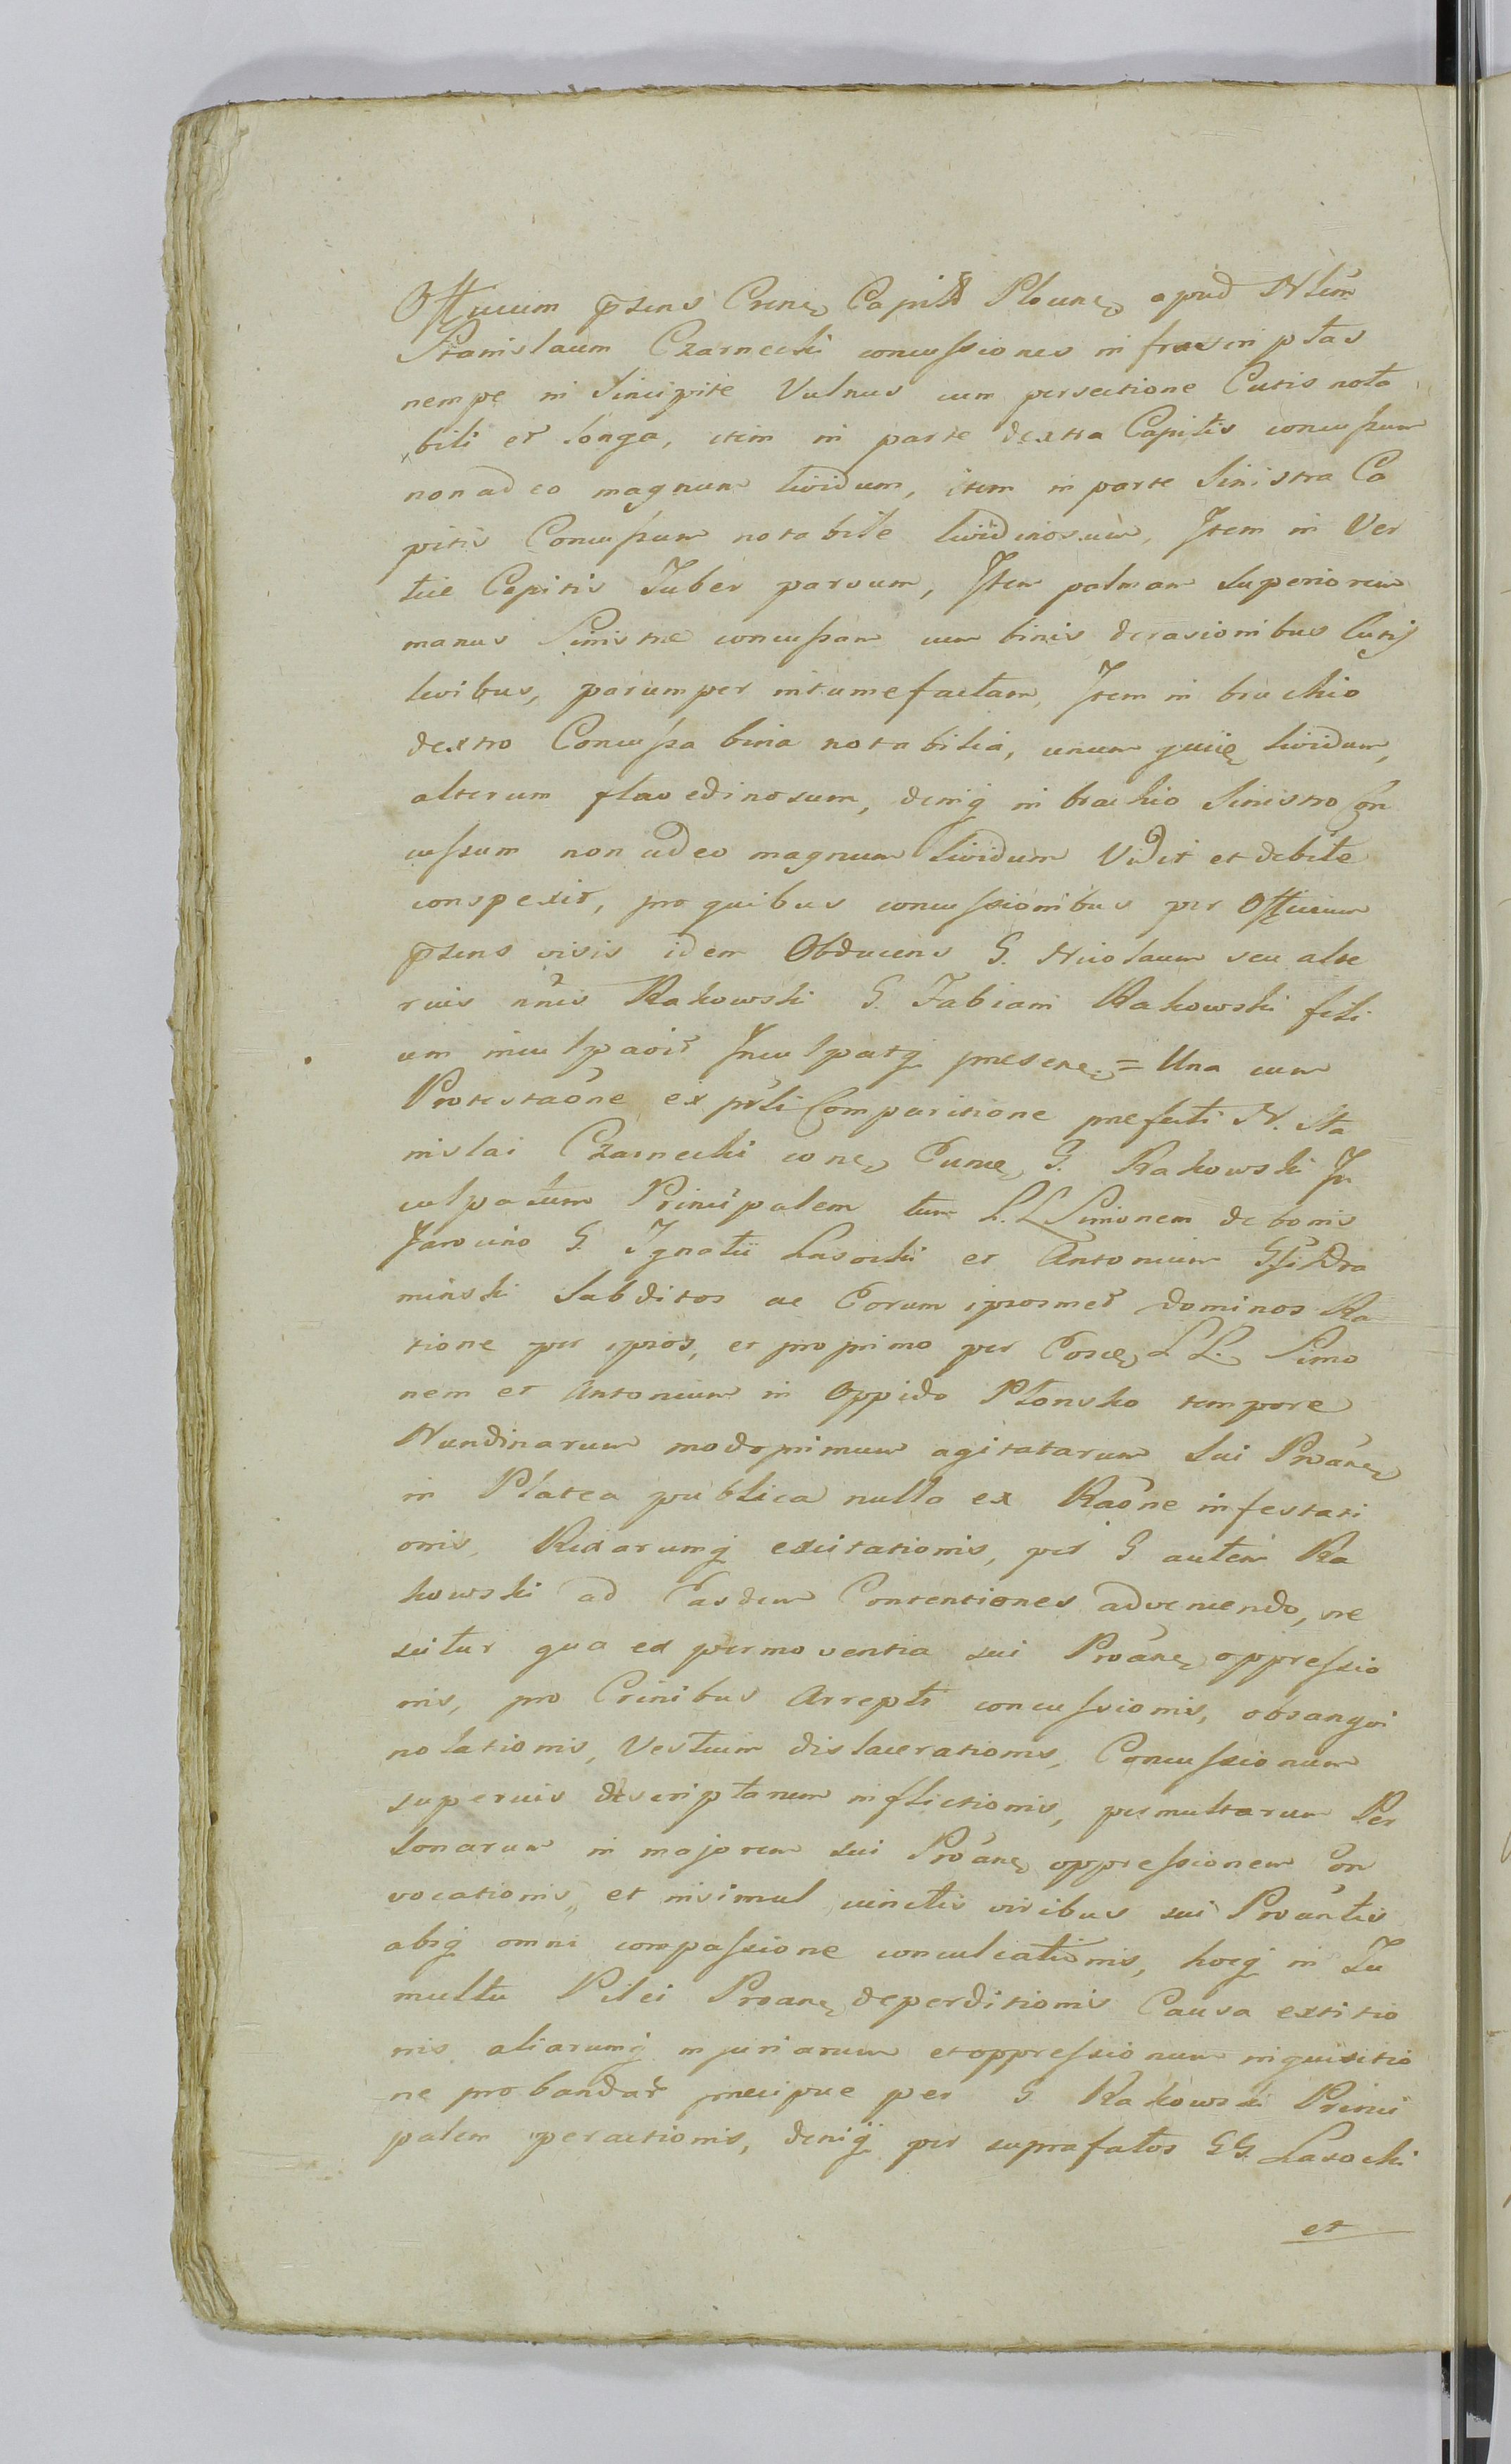 Officium pñsens Crense Capitle Plocense apud Nlem
Stanislaum Czarnecki concussiones infrascriptas
nempe in Sincipite Vulnus cum persectione Cutis nota
bili et longa, item in parte dextra Capitis concussum
non adeo magnum lividum, item in parte Sinistra Ca
pitis Concussum notabile lividinosum, Item in Ver
tice Capitis Tuber parvum, Item palmam superiorem
manus Sinistræ concussam cum binis derasionibus Cutis
levibus, parumper intumefactam, Item in brachio
dextro Concussa bina notabilia, unum lividum,
alterum flavedinosum, deniq in brachio Sinistro Con
cussum non adeo magnum lividum Vidit et debite
conspexit, pro quibus concussionibus per Officium
pñsens visis idem Obducens G. Nicolaum seu alte
rius nñis Rakowski G. Fabiani Rakowski fili
um inculpavit Inculpatq præsense = Una cum
Protestaõne ex pñli Comparitione præfati N. Sta
nislai Czarnecki conse Eunde G. Rakowski In
culpatum Principalem tum L.L. Simonem de bonis
Jarocino G. Ignatii Lasocki et Antonium Gsi Dra
minski Subditos ac Eorum ipsosmet dominos Ra
tione per ipsos, et pro primo per Eosde LL. Simo
nem et Antonium in Oppido Plonsko tempore
Nundinarum modoprimum agitatarum sui Proãns
in Platea publica nulla ex Raõne infestati
onis, Rixarumq excitationis, per G autem Ra
kowski ad Easdem Contentiones adveniendo, ne
scitur qua ex permoventia sui Proãns oppressio
nis, pro Crinibus Arrepti concussionis, obsangvi
nolationis, Vestium dislacerationis, Concussionum
superius descriptarum inflictionis, permultarum Per
sonarum in majorem sui Proãns oppressionem Con
vocationis, et insimul cunctis viribus sui Proãntis
absq omni compassione conculcationis, hocq in Tu
multu Pilei Proans deperditionis Causa extitio
nis aliarumq injuriarum et oppressionum inquisitio
ne probandar præcipue per G Rakowski Princi
palem peractionis, deniq per suprafatos GG. Lasocki
et